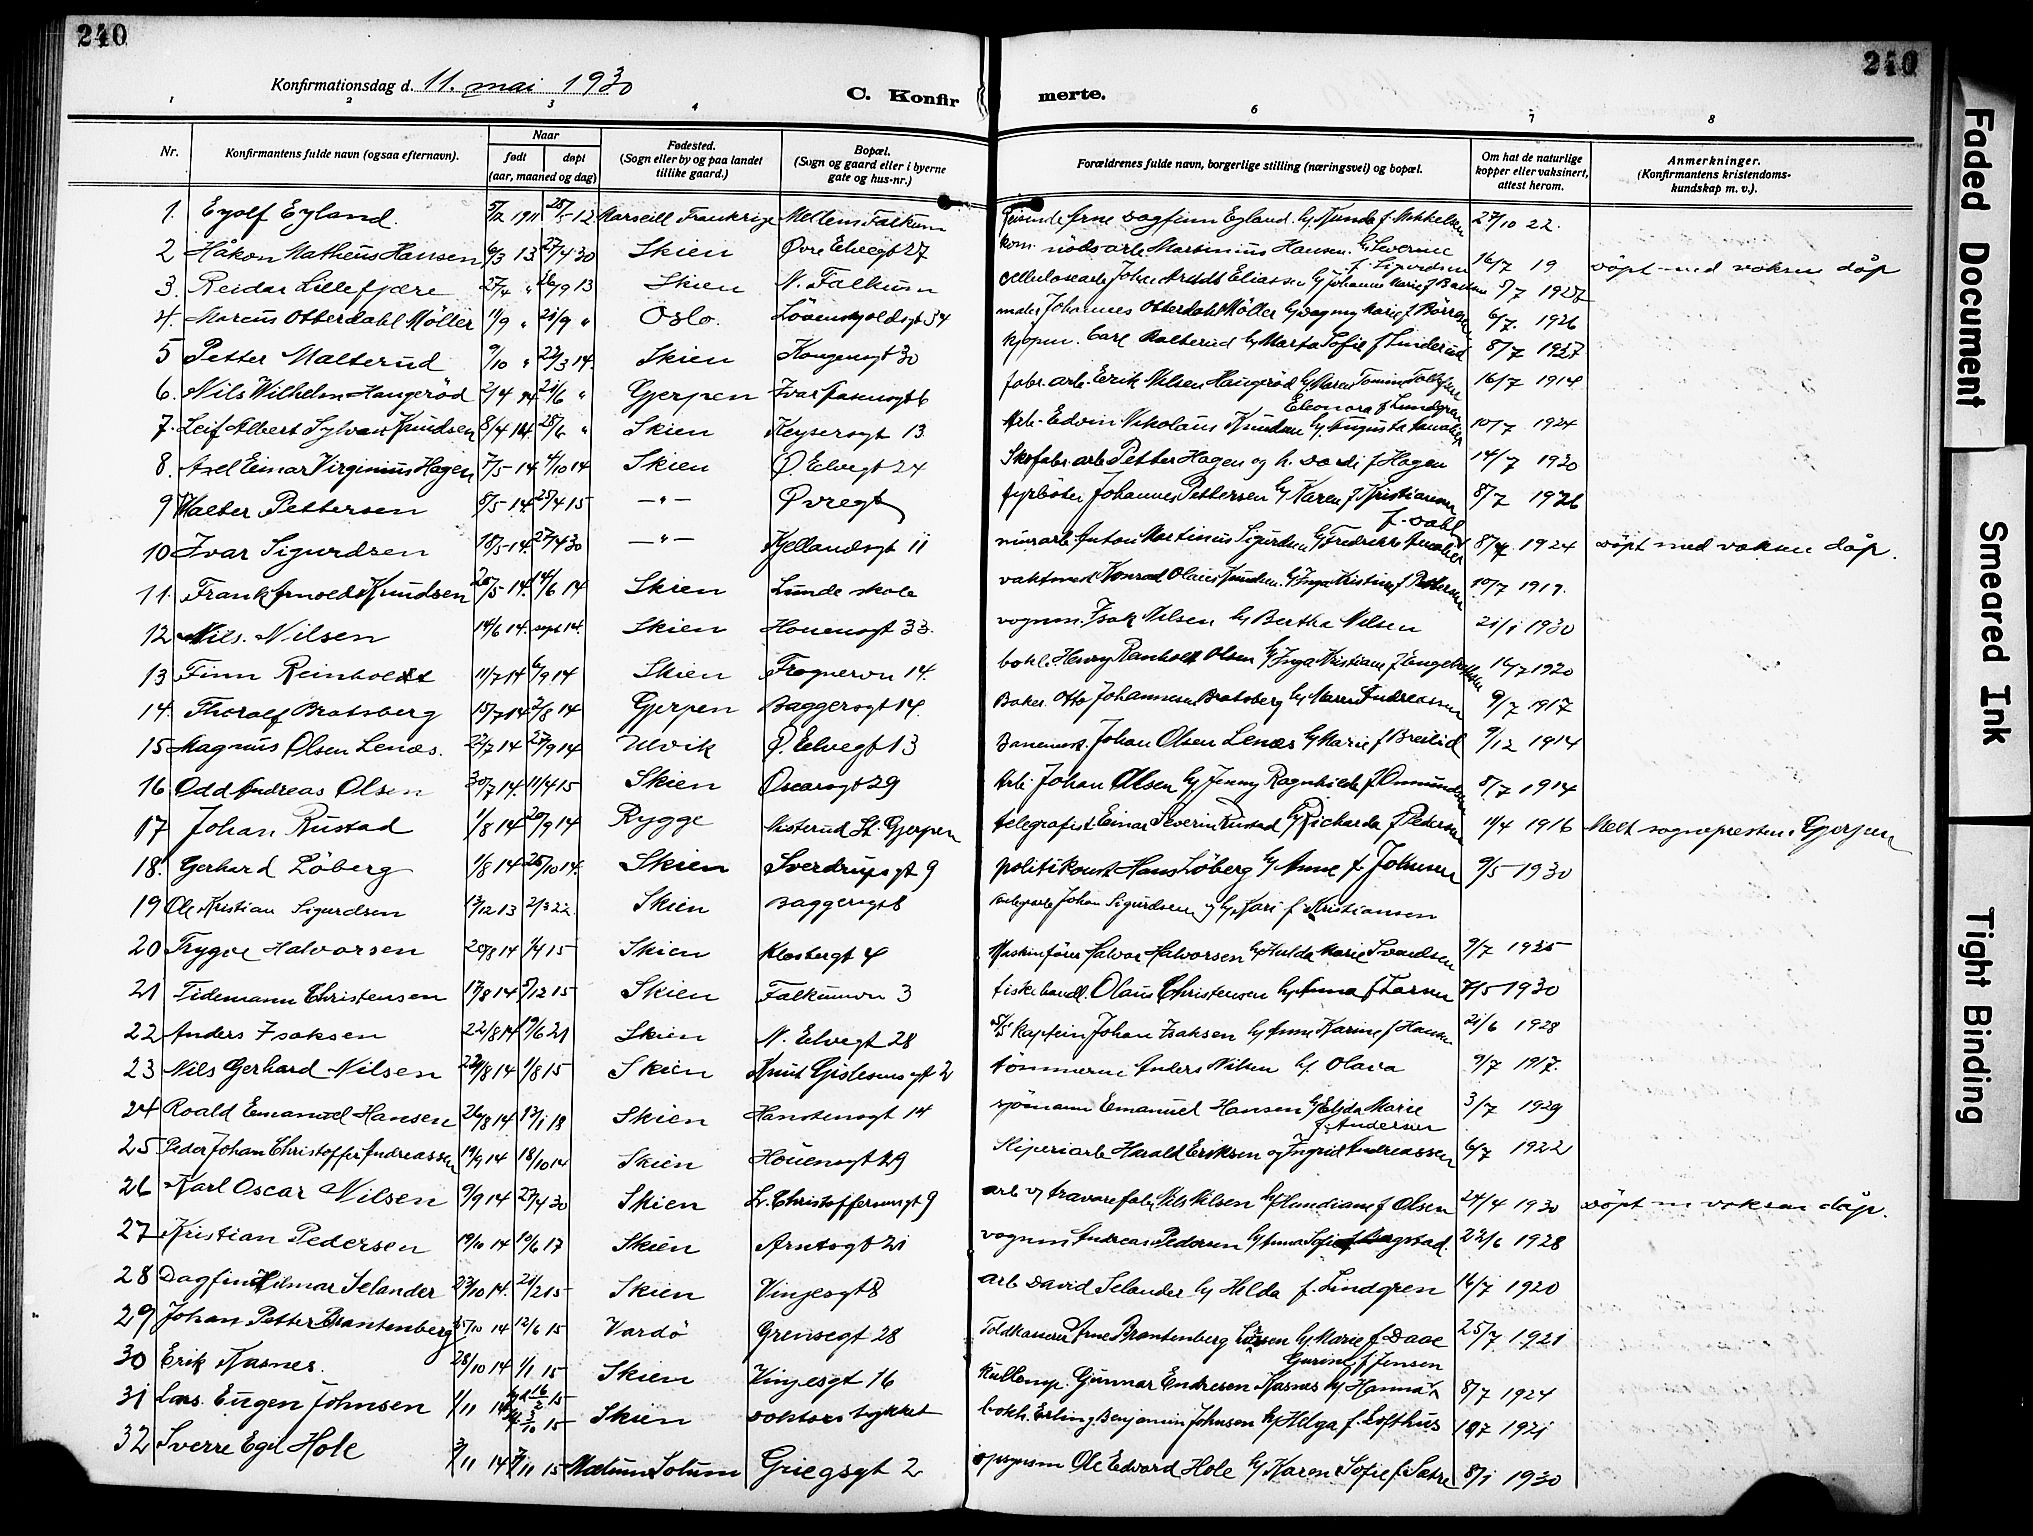 240
240
Konfirmationsdag d. 11. mai 1930
C. Konfir
merte.
1 2 3 4 5 6 7 8
Nr.
Konfirmantens fulde navn (ogsaa efternavn).
Naar
født
døpt
(aar, maaned og dag)
Fødested.
(Sogn eller by og paa landet
tillike gaard.)
Bopæl.
(Sogn og gaard eller i byerne
gate og hus-nr.)
Forældrenes fulde navn, borgerlige stilling (næringsvei) og bopæl.
Om hat de naturlige
kopper eller vaksinert,
attest herom.
Anmerkninger.
(Konfirmantens kristendoms-
kundskap m. v.).
1. Eyolf Eyland. Marseill Frankrige Mellem Falkum Arne Dagfinn Eyland 27/10 22.
2 Håkon Matheus Hansen 6/3 13 27/4 30 Skien Øvre Elvegt 27 Martinius Hansen Severine f. Sigurdsen 16/7 19 döpt med voksen dåp
3. Reidar Lillefjære 27/4 " Skien N. Falkum Eliassen 5/7 1927
4. Marcus Otterdahl Möller 11/9 " 21/9 " Oslo. Lövenskjoldsgt 34 maler Johannes Otterdahl Möller 6/7. 1926
5 Petter Malterud 9/10 " 22/3 14. Skien Kongensgt 30 kjöpm. Carl Malterud Marta Sofie f Linderud 8/7 1927
6. Nils Wilhelm Haugeröd 2/4 14 21/6 " Gjerpen Ivar Aasensgt 6 fabr. arb. Erik Nilsen Haugeröd 16/7 1914
7. Leif Albert Sylvan Knudsen 8/4 14. 28/6 " Skien Keysersgt 13 Arb. Edvin Nikolaus Knudsen Augusta Eleonora f Lundgren 10/7 1924
8. Axel Einar Virginius Hagen 7/5 14 4/10 14 Skien Ø. Elvegt 24 Skofabr. arb Petter Hagen og h. Dordi f Hagen 14/7 1930
9 Walter Pettersen 8/5 14. 25/4 15 — " — Øvregt fyrböter Johannes Pettersen Karen f Kristiansen 8/7 1926
10 Ivar Sigurdsen 18/5 14. 27/4 30 — " — Kjellandsgt 11 murarb. Anton Martinius Sigurdsen Fredrikke f. Dahl 1924 döpt med voksen dåp.
11. Frank Arnold Knudsen 20/5 14. 14/6 14 Skien Lunde skole Konrad Olaus Knudsen Inga Kristine f Pettersen 10/7 1919.
12 Nils. Nilsen 14/6 14. sept 14. Skien Houensgt 33. vognm. Isak Nilsen Bertha Nilsen 21/1 1930
13 Finn Reinholdt 11/7 14 6/9 14 Skien Frogneron 14. bokh. Henry Reinholdt Olsen Inga Kristiane f Engebretsen 1920
14. Thoralf Bratsberg 15/7 14 2/8 14 Gjerpen Baggersgt 14. Baker. Otto Johannesen Bratsberg Andreassen 9/7 1917
15 Magnus Olsen Lenæs. 22/7 14 27/9 14 Ulvik Ø. Elvegt 13 Banemest. Johan Olsen Lenæs Marie f Breilid 9/12 1914
16 Odd Andreas Olsen 30/7 14. 11/4 15 Skien Oscarsgt 29 Arb Johan Olsen Jenny Ragnhilde f Omundsen 8/7 1914
17 Johan Rustad 1/8 14 20/9 14 Rygge St. Gjerpen telegrafist Einar Severin Rustad Richarda f Pedersen 11/4 1916 Melt sognepresten i Gjerpen
18. Gerhard Löberg 1/8 14 25/10 14. Skien Sverdrupsgt 9 politikonst. Hans Löberg Anne f Johnsen 9/5 1930
19 Ole Kristian Sigurdsen 17/12 13 2/3 22. Skien Baggersgt 8 Johan Sigurdsen og h. Kari f Kristiansen
20 Trygve Halvorsen 20/8 14 1/4 15 Skien Klostergt 4 Maskinförer Halvor Halvorsen Hulda Marie Svendsen 9/7 1925
21 Tidemann Christensen 17/8 14 5/12 15 Skien Falkumvn 3 fiskehandl. Olaus Christensen Anna f Larsen 7/5 1930
22 Anders Isaksen 22/8 14 19/6 21 Skien N. Elvegt 28 Kaptein Johan Isaksen Anne Karine f Hansen 21/6 1928
23 Nils Gerhard Nilsen 22/8 14 1/8 15 Skien Knut Gislesens gt 2 tömmerm. Anders Nilsen h. Olava 9/7 1917.
24 Roald Emanuel Hansen 26/8 14 13/1 18 Skien Hanstensgt 14 sjömann Emanuel Hansen Elida Marie f. Andersen 3/7 1929
25 Peder Johan Christoffer Andreassen 14/9 14 18/10 14 Skien Houensgt 29 Sliperiarb Harald Eriksen og Ingrid Andreassen 6/7 1922
26 Karl Oscar Nilsen 9/9 14 27/4 30 Skien L. Christoffersensgt 9 Nils Nilsen f Olsen 24/4 1930 döpt m voksen dåp.
27 Kristian Pedersen 19/10 14 10/6 17 Skien Arntsgt 21 vognm Andreas Pedersen Anna Sofie 22/6 1928
28 Dagfin Hilmar Selander 23/10 14. 21/2 15 Skien Vinjesgt 8 arb David Selander Hilda f. Lindgren 16/7 1920
29 Johan Petter Brantenberg 25/10 14 12/6 15 Vardö Grensegt 28 Toldkasserer Arne Brantenberg Marie f. Daae 25/7 1921
30 Erik Kasnes. 28/10 14 1/1 15 Skien Vinjesgt 16 Gunnar Endresen Kasnes Hanna Gurine f Jensen 8/7 1924
31 Lars Eugen Johnsen 1/11 14 Skien bokh. Erling Benjamin Johnsen Helga f. Lofthus 1921
32 Sverre Egil Hole 3/11 14 7/11 15 Griegsgt 2 opsynsm Ole Edvard Hole Karen Sofie f. Sætre 8/1 1930
Faded Document
Smeared Ink
Tight Binding